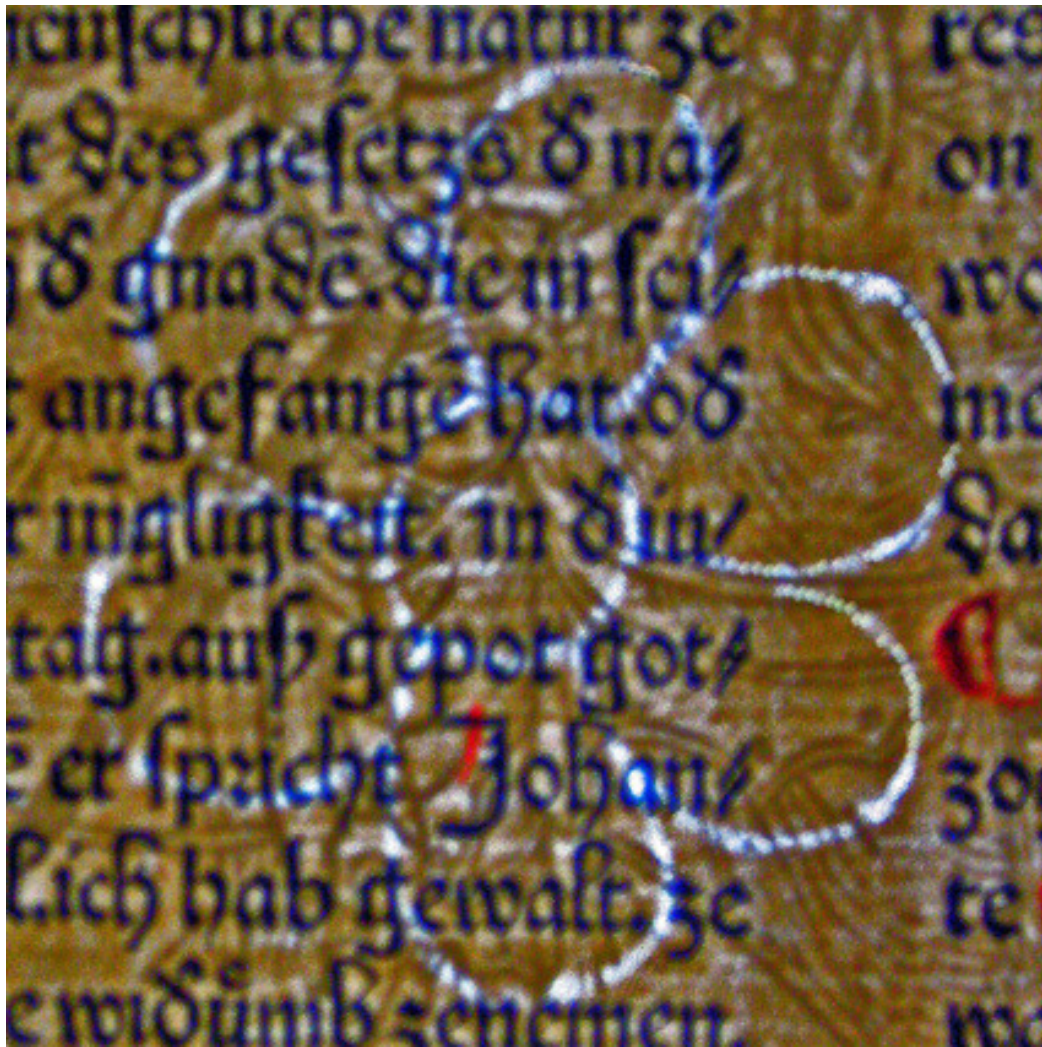 menschliche natur ze
t des gesetzs d̕ na⸗
d̕ gnadē. die in sei⸗
t angefangē hat. od̕
r mͤgligkeit. in d̕ iu⸗
tag. auß gepor got⸗
ē er spricht Johan⸗
l. ich hab gewalt. ze
e widͦumb zenemen.
res
on
wo
me
da
zo
te
wo